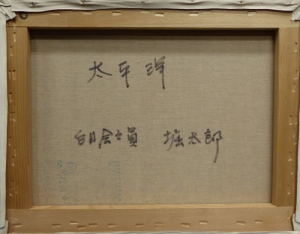 太平洋
白日会会員 堀太郎